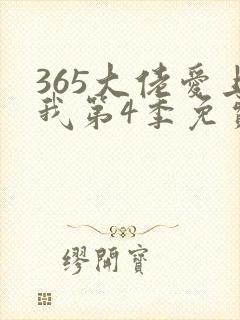 365大佬爱上
我第4季免费
缪開寶